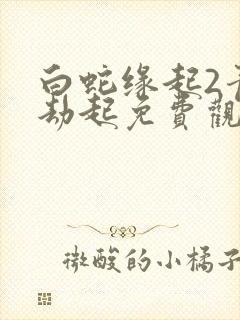 白蛇缘起2青
劫起免費觀
微酸的小橘子